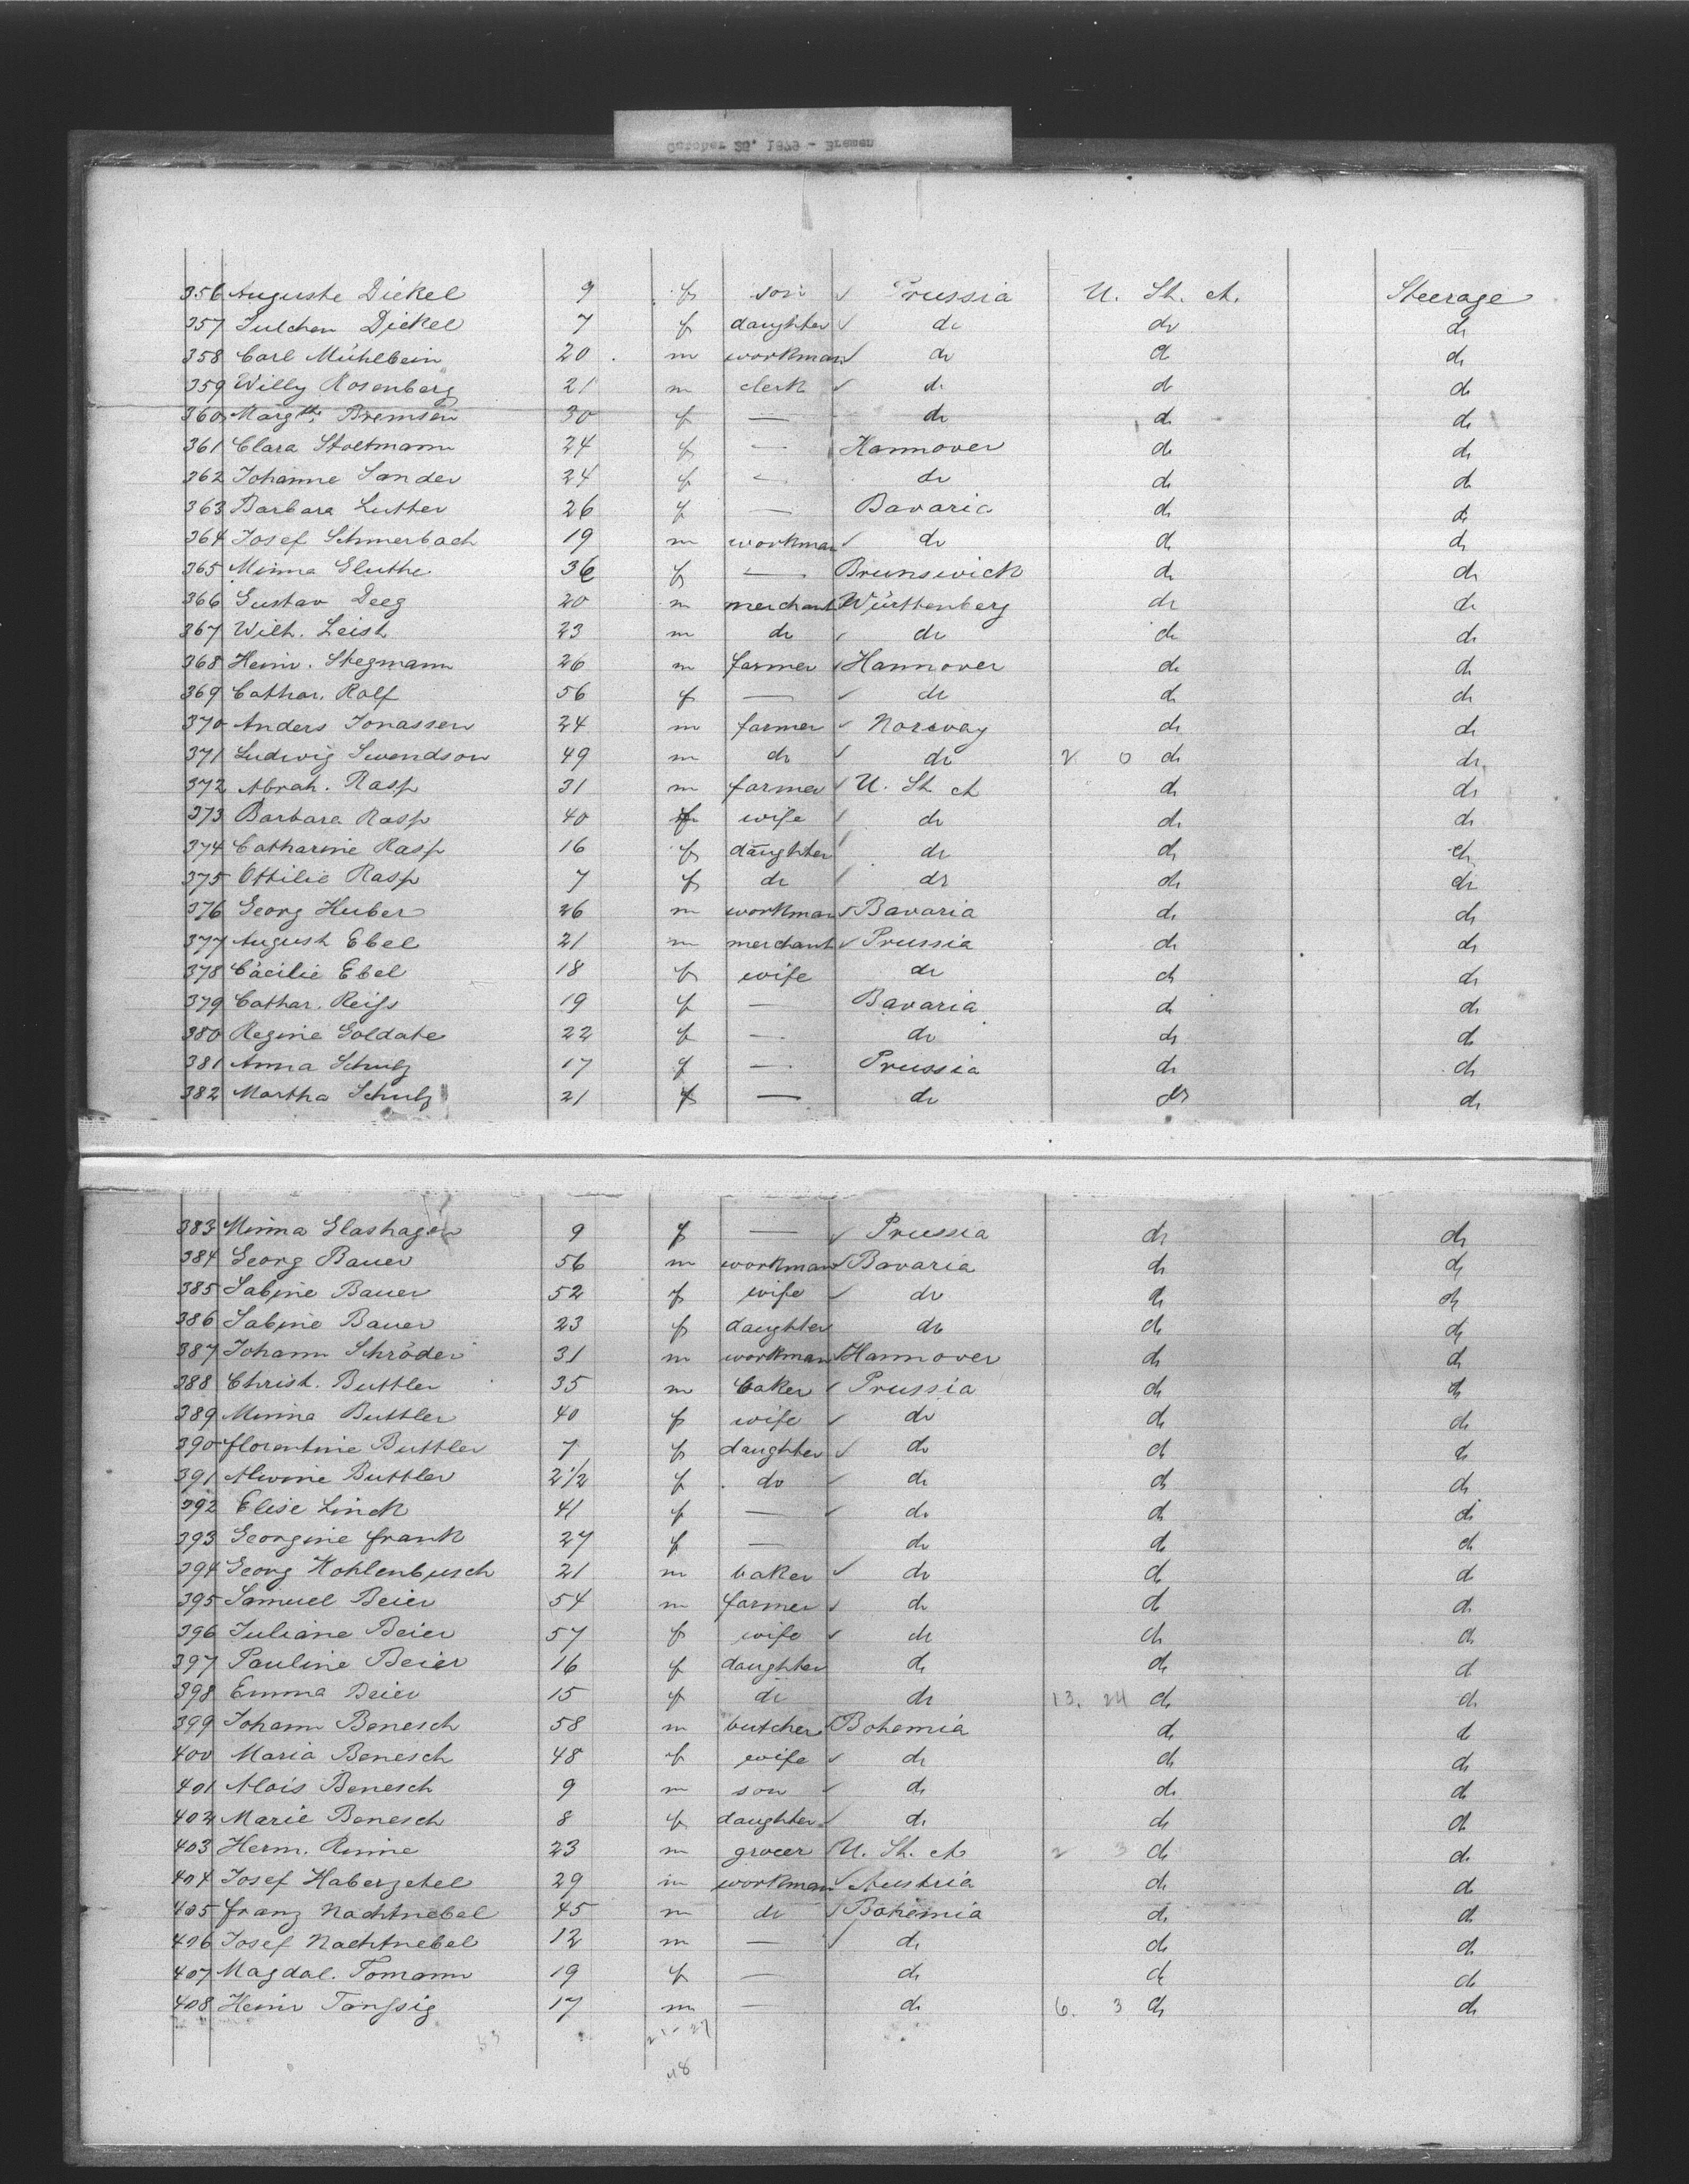 October 25, 1879 - Bremen
356 Auguste Diekel 9 f son ✓ Prussia U. St. A. Steerage
357 Julchen Diekel 7 f daughter ✓ do do do
358 Carl Mühlbein 20 m workman ✓ do do do
359 Willy Rosenberg 21 m clerk ✓ do do do
360 Margthe Bremsen 30 f — do do do
361 Clara Stoetmann 24 f — Hannover do do
362 Johanne Sander 24 f — do do do
363 Barbara Luther 26 f — Bavaria do do
364 Josef Schmerbach 19 m workman ✓ do do do
365 Minna Gluthe 36 f — Brunswick do do
366 Gustav Deeg 20 m merchant Württenberg do do
367 Wilh. Leist 23 m do ✓ do do do
368 Heinr. Stegmann 26 m farmer ✓ Hannover do do
369 Cathar. Rolf 56 f — ✓ do do do
370 Anders Jonassen 24 m farmer ✓ Norway do do
371 Ludwig Swendson 49 m do ✓ do 2 0 do do
372 Abrah. Rasp 31 m farmer ✓ U. St. A do do
373 Barbara Rasp 40 f wife ✓ do do do
374 Catharine Rasp 16 f daughter ✓ do do do
375 Ottilie Rasp 7 f do ✓ do do do
376 Georg Huber 26 m workman ✓ Bavaria do do
377 August Ebel 21 m merchant ✓ Prussia do do
378 Cäcilie Ebel 18 f wife do do do
379 Cathar. Reiss 19 f — Bavaria do do
380 Regine Goldate 22 f — do do do
381 Anna Schulz 17 f — Prussia do do
382 Martha Schulz 21 f — do do do
383 Minna Glashagen 9 f — ✓ Prussia do do
384 Georg Bauer 56 m workman ✓ Bavaria do do
385 Sabine Bauer 52 f wife ✓ do do do
386 Sabine Bauer 23 f daughter do do do
387 Johann Schröder 31 m workman ✓ Hannover do do
388 Christ. Buttler 35 m baker ✓ Prussia do do
389 Minna Buttler 40 f wife ✓ do do do
390 Florentine Buttler 7 f daughter ✓ do do do
391 Alwine Buttler 2 1/2 f do ✓ do do do
392 Elise Linck 41 f — ✓ do do do
393 Georgine Frank 27 f — do do do
394 Georg Kohlenbusch 21 m baker ✓ do do do
395 Samuel Beier 54 m farmer ✓ do do do
396 Juliane Beier 57 f wife ✓ do do do
397 Pauline Beier 16 f daughter do do do
398 Emma Beier 15 f do do 13. 24 do do
399 Johann Benesch 58 m butcher ✓ Bohemia do do
400 Maria Benesch 48 f wife ✓ do do do
401 Alois Benesch 9 m son ✓ do do do
402 Marie Benesch 8 f daughter ✓ do do do
403 Herm. Rinne 23 m grocer U. St. A 2 3 do do
404 Josef Haberzetel 29 m workman ✓ Austria do do
405 Franz Nachtnebel 45 m do ✓ Bohemia do do
406 Josef Nachtnebel 12 m — ✓ do do do
407 Magdal. Tomann 19 f — do do do
408 Heinr Taussig 17 m — do 6. 3 do do